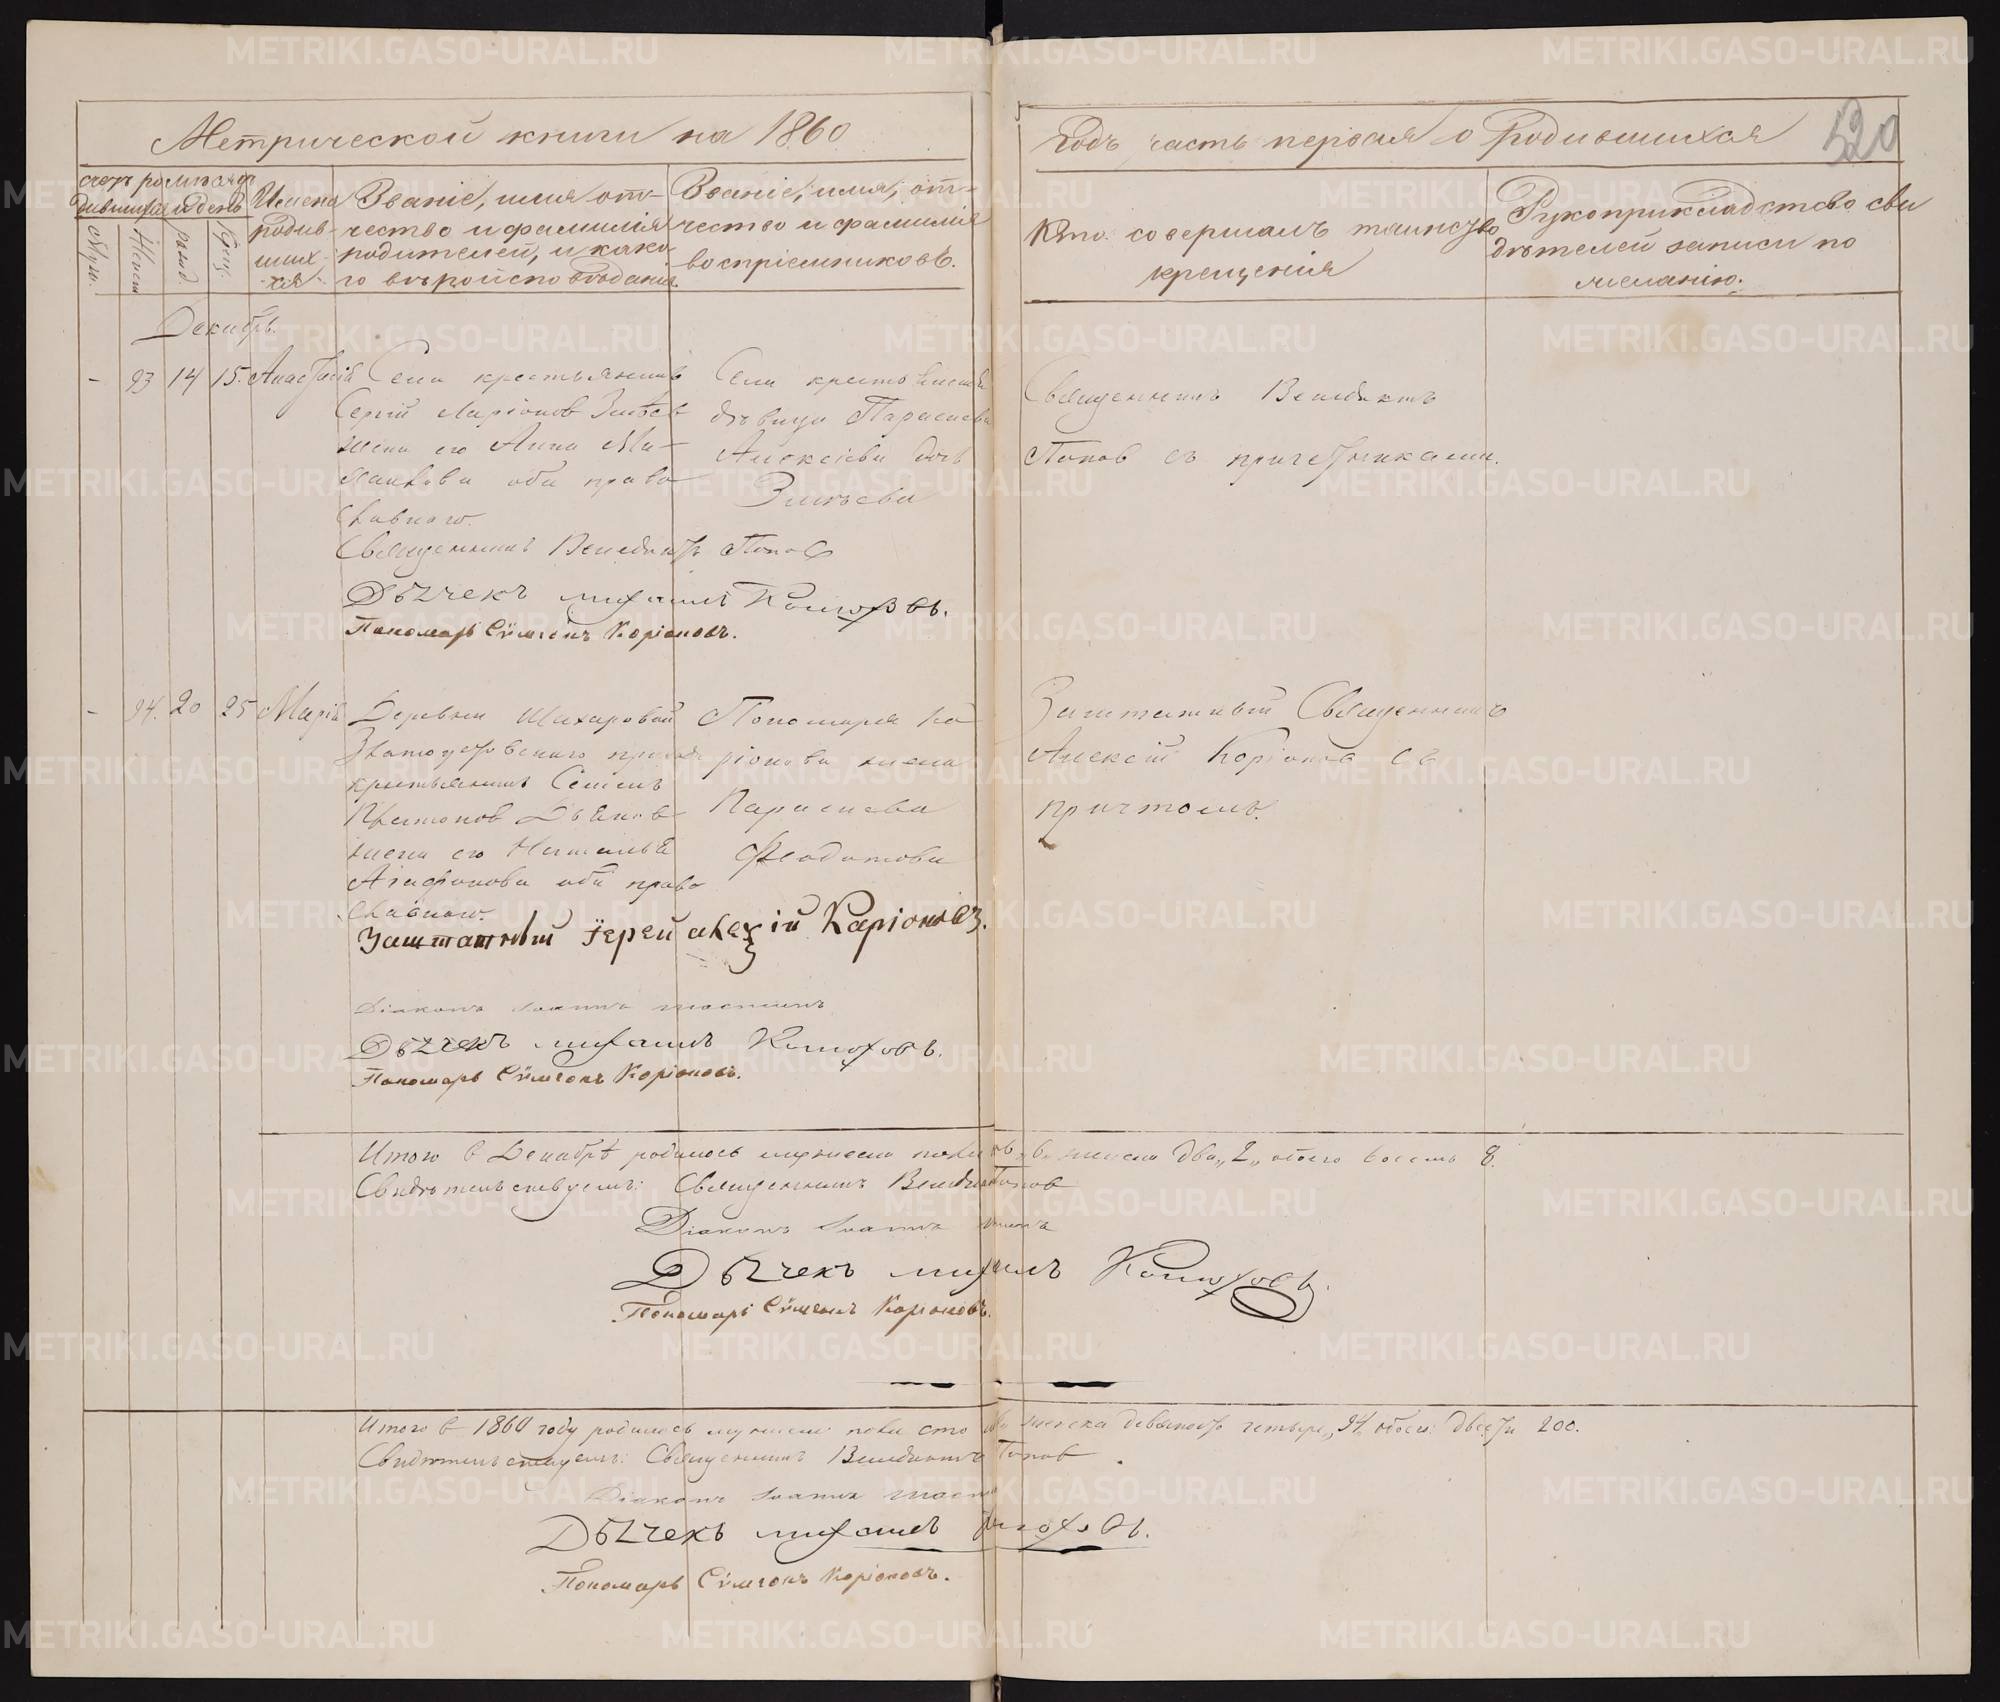 Метрической книги на 1860
Годъ часть первая о Родившихся
520
счетъ родившихся
месяцъ и день
Муж.
Женск
рожд.
Крещ.
Имена родившихся
Званіе, имя отчество и фамилія родителей, и какого вѣроисповѣданія.
Званіе, имя, отчество и фамилія воспріемниковъ.
Кто совершалъ таинство
крещенія
Рукоприкладство сви
дѣтелей записи по
желанію.
Декабрь.
- 93 14 15. Анастасія
Села крестьянинъ
Сергій Ларіонов Зиѣев
жена его Анна
оба право
славного.
Села крестьянская
дѣвица Параскева
Алексіева дочь
Зинѣева
Священникъ Венедиктъ
Попов съ причетниками.
Священникъ Венедиктъ Попов
Дьячекъ михаилъ Конюховъ.
Пономарь Сѵмеонъ Коріоновъ.
- 94. 20 25 Марія
Деревни Шихаровой
Златоустовского прихода
крестьянинъ Семенъ
Платонов Дьяков
жена его Наталья
Агафонова оба право
славного.
Пономаря Ко
ріонова жена
Параскева
Феодотова
Заштатный Священникъ
Алексій Коріонов съ
причтомъ.
Заштатный Іерей алексій Каріоновъ.
Діаконъ Іоаннъ
Дьячекъ михаилъ Конюховъ.
Пономарь Сѵмеонъ Коріоновъ.
Итого в Декабрѣ родилось мужеска пола женска два „2„ обоего восемь 8.
Свидѣтельствуемъ: Священникъ Венедиктъ Попов
Діаконъ Іоаннъ
Дьячекъ михаилъ Конюховъ.
Пономарь Сѵмеонъ Коріоновъ.
Итого в 1860 году родилось мужеска пола сто женска девяносто четыре, 94, обоего двести 200.
Свидѣтельствуемъ: Священникъ Венедиктъ Попов
Діаконъ Іоаннъ
Дьячекъ михаилъ Конюховъ.
Пономарь Сѵмеонъ Коріоновъ.
METRIKI.GASO-URAL.RU